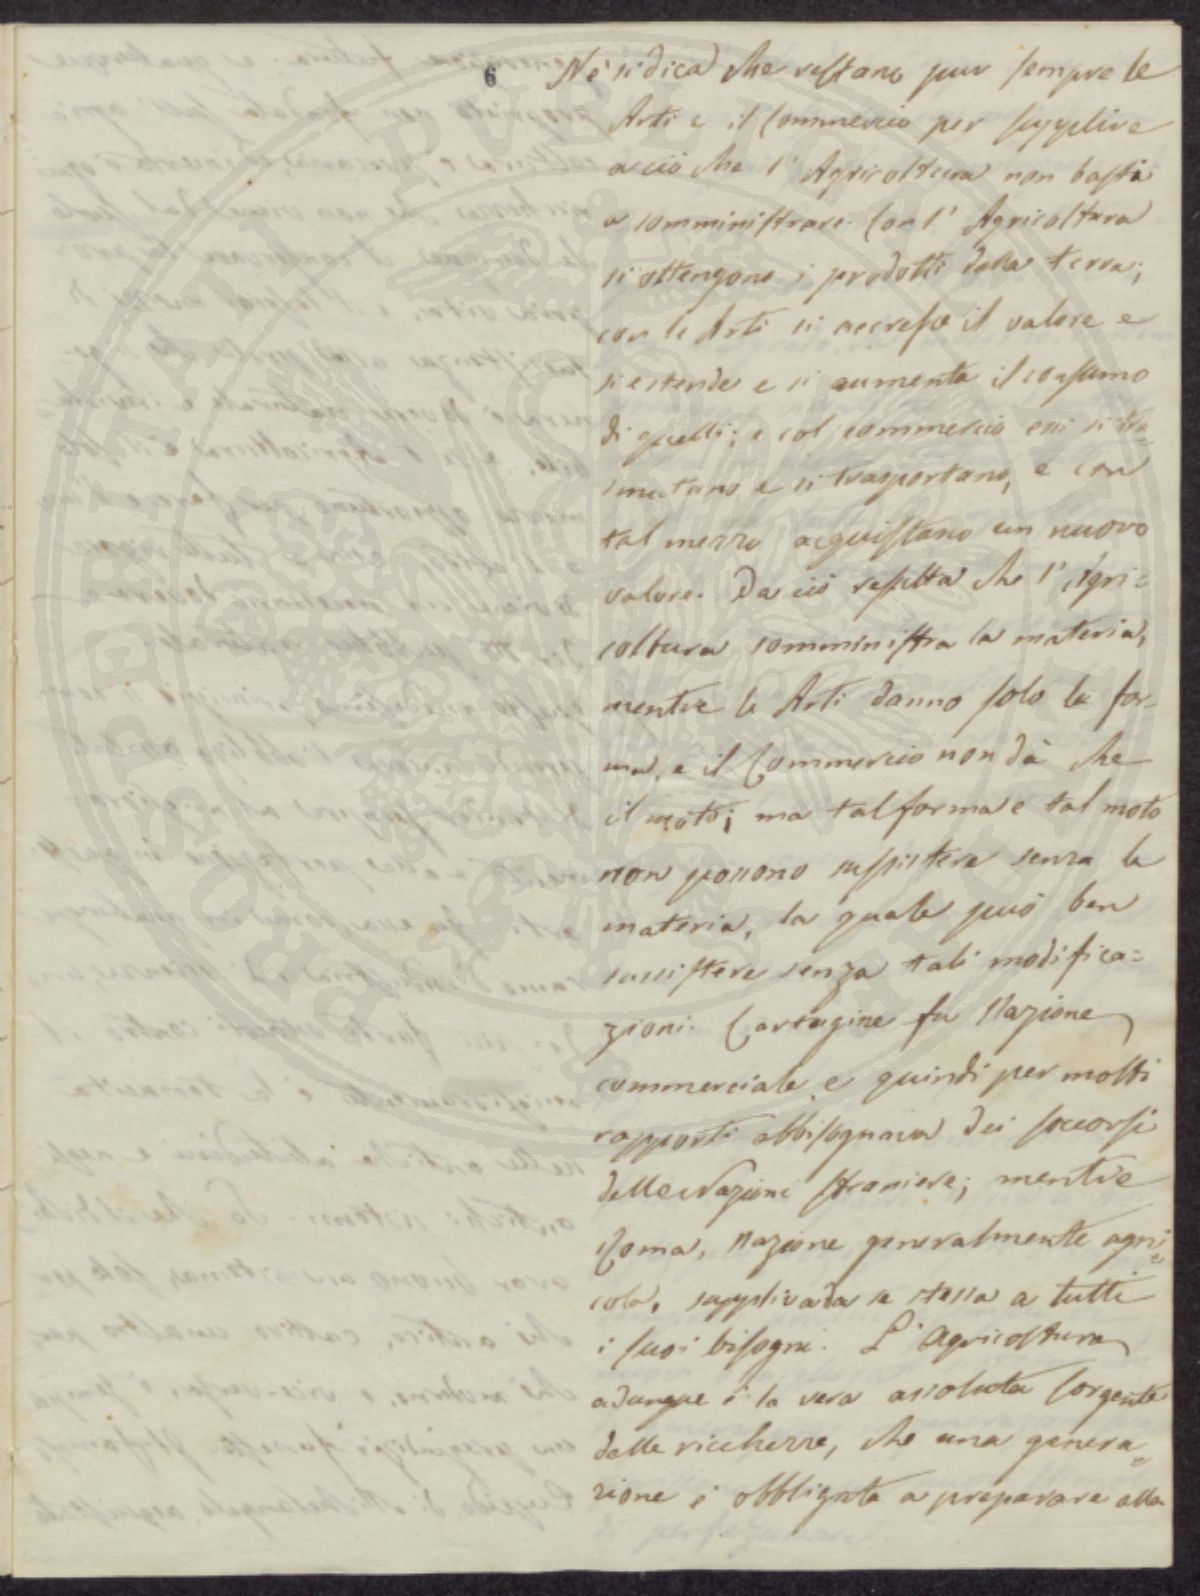 6 Nè si dica che restano pur sempre le
Arti e il Commercio per supplire
a ciò che l'Agricoltura non basta
a somministrare. Con l'Agricoltura
si ottengono i prodotti della terra;
con le Arti si accresce il valore e
si estende e si aumenta il consumo
di quelli; e col commercio essi si tra=
smutano e si trasportano, e con
tal mezzo acquistano un nuovo
valore. Da ciò resulta che l'Agri=
coltura somministra la materia,
mentre le Arti danno solo la for=
ma, e il Commercio non dà che
il moto; ma tal forma e tal moto
non possono sussistere senza la
materia, la quale può ben
sussistere senza tali modifica=
zioni. Cartagine fu Nazione
commerciale e quindi per molti
rapporti abbisognava dei soccorsi
delle Nazioni straniere; mentre
Roma, Nazione generalmente agri=
cola, suppliva da se stessa a tutti
i suoi bisogni. L'Agricoltura
adunque è la vera assoluta sorgente
delle ricchezze, che una genera=
zione è obbligata a preparare alla
PROSPERITATI PUBLICAE